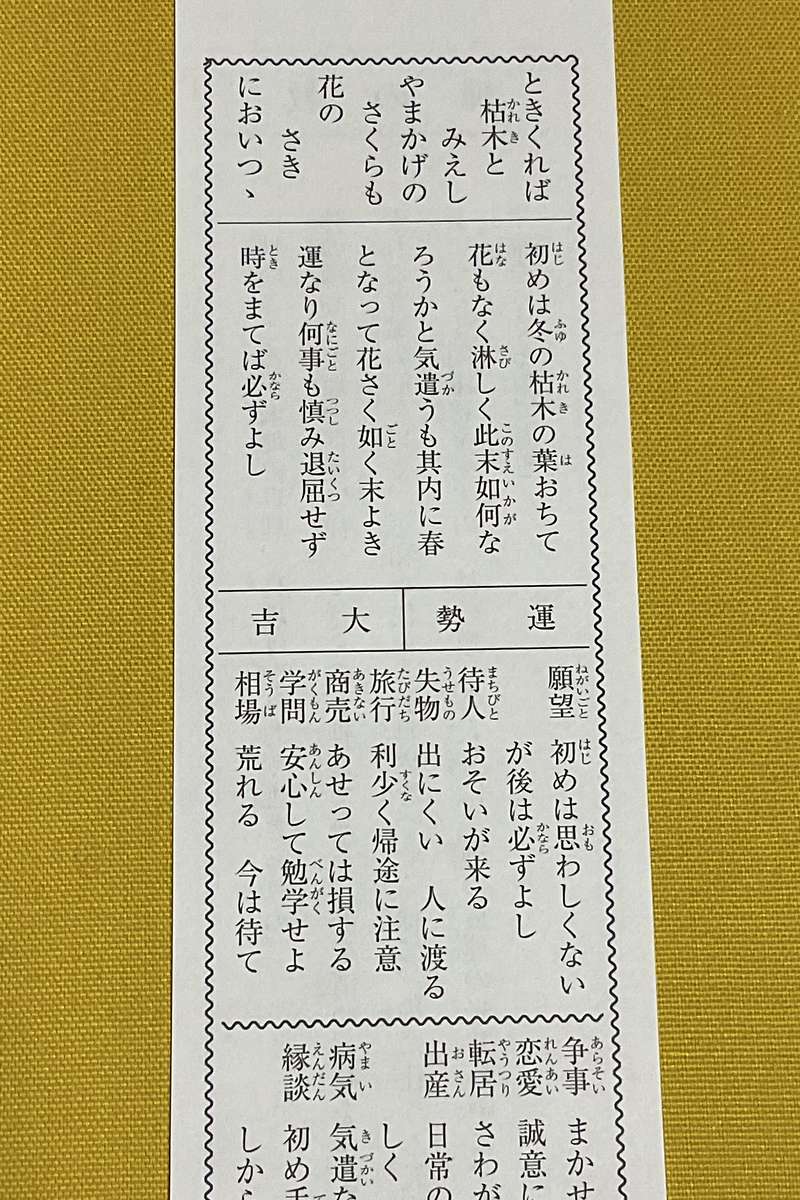 ときくれば
枯木と
みえし
やまかげの
さくらも
花の
さき
においつゝ
初めは冬の枯木の葉おちて
花もなく淋しく此末如何な
ろうかと気遣うも其内に春
となって花さく如く末よき
運なり何事も慎み退屈せず
時をまてば必ずよし
運勢
大吉
願望 初めは思わしくない
が後は必ずよし
待人 おそいが来る
失物 出にくい 人に渡る
旅行 利少く帰途に注意
商売 あせっては損する
学問 安心して勉学せよ
相場 荒れる 今は待て
争事 まかせ
恋愛 誠意に
転居 さわが
出産 日常の
しく
病気 気遣な
縁談 初め
しから